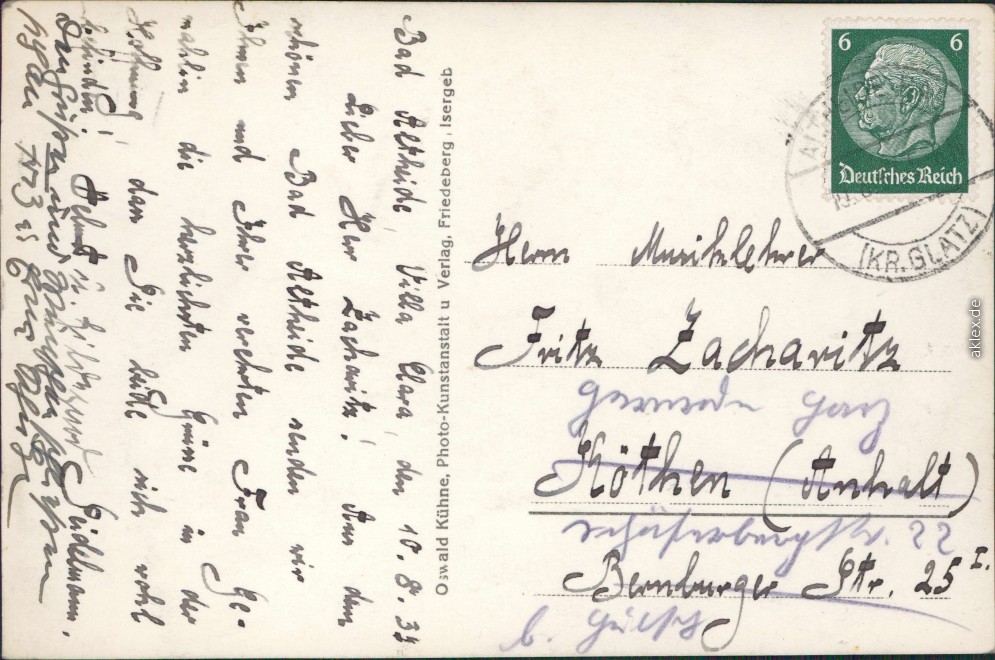 Bad Altheide, Villa Clara, den 10. 8. 34
Lieber Herr Zacharitz! Aus dem
schönen Bad Altheide senden wir
Ihnen und Ihrer verehrten Frau Ge-
mahlin die herzlichsten Grüße in der
Hoffnung, dass Sie beide sich wohl
befinden!
Seidelmann.
Oswald Kühne, Photo-Kunstanstalt u Verlag, Friedeberg, Isergeb
6 6
Deutsches Reich
(KR. GLATZ)
Herrn Musiklehrer
Fritz Zacharitz
Gernrode Harz
Köthen (Anhalt)
22
Bernburger Str. 25 I.
b.
aklex.de